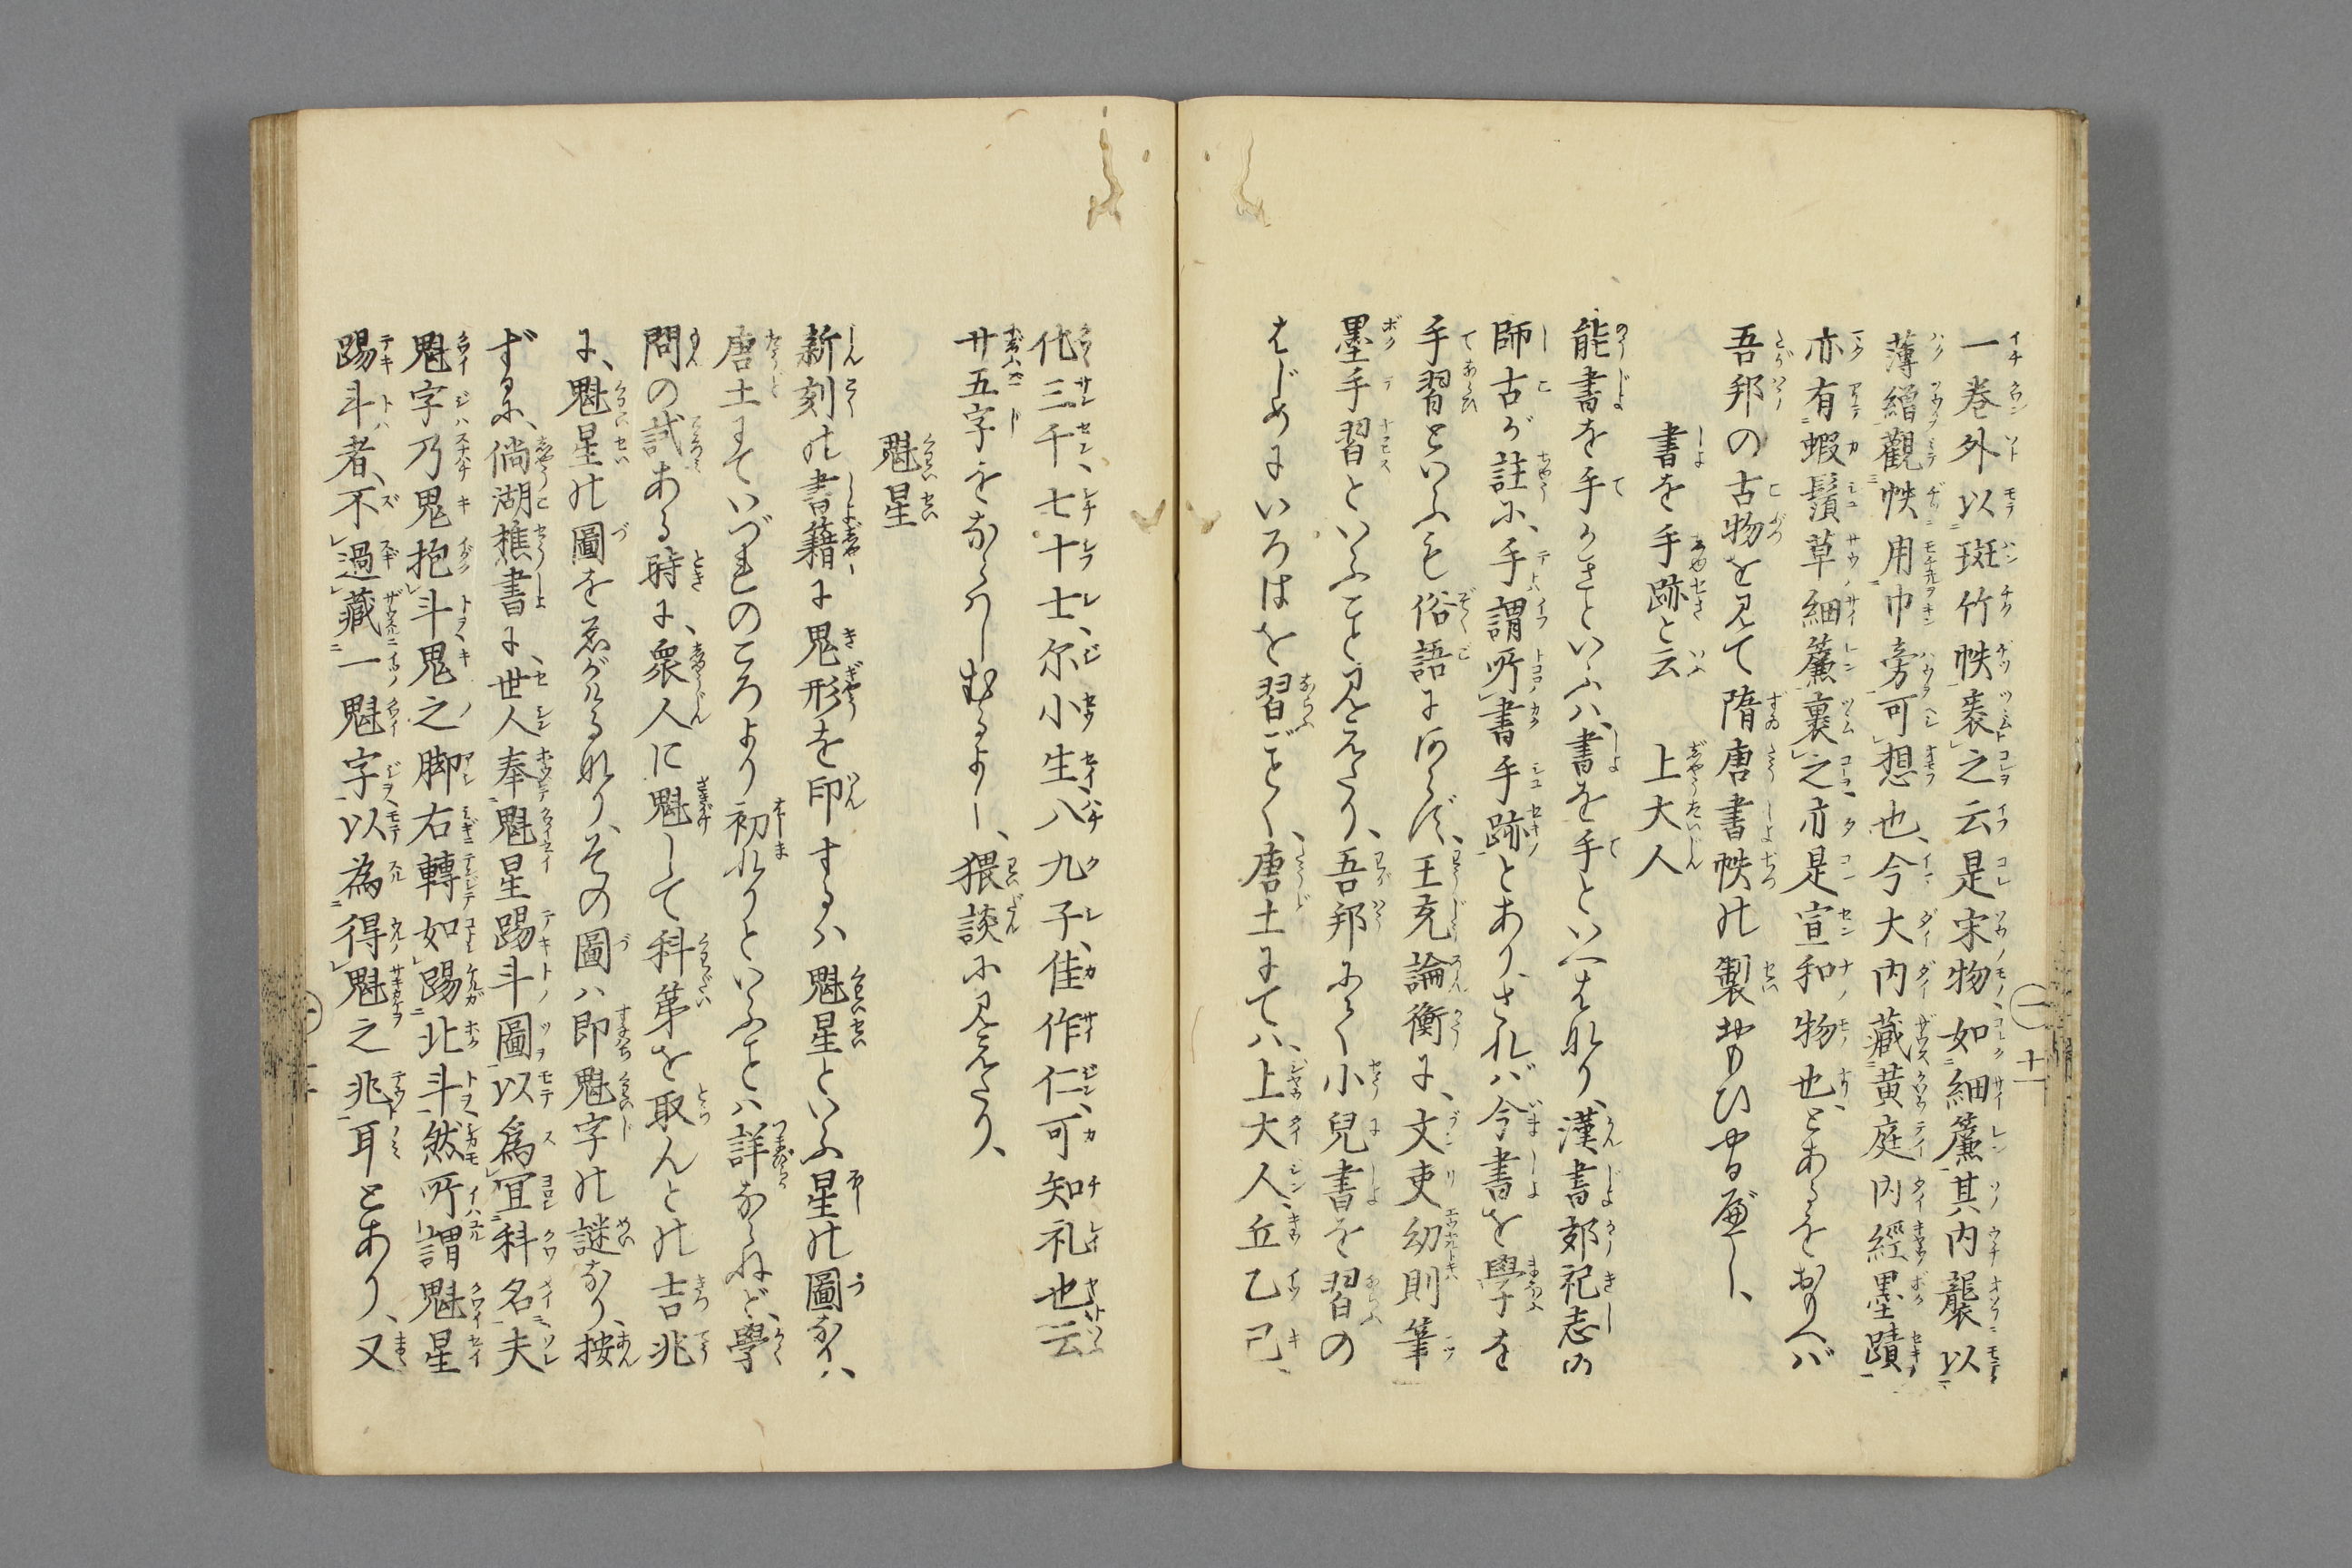 一巻外以斑竹帙裹之云是宋物如細簾其内襲以
薄繒觀帙用巾旁可想也、今大内藏黄庭内經墨蹟
亦有蝦鬚草細簾裏之亦是宣和物也、とあるをおもへバ
吾邦の古物を見て隋唐書帙の製おもひやるべし、
書を手跡と云　上大人
能書を手かきといふハ、書を手といへるなり、漢書郊祀志の
師古が註に、手謂所書手跡とあり、されバ今書を學を
手習といふも俗語にあらず、王充論衡に、文吏幼則筆
墨手習といふこと見えたり、吾邦にて小兒書を習の
はじめにいろはを習ごとく、唐土にてハ、上大人、丘乙己、
化三千、七十士、尔小生、八九子、佳作仁、可知礼也云
廿五字をならハしむるよし、猥談に見えたり、
魁星
新刻の書籍に鬼形を印するハ魁星といふ星の圖なハ、
唐土にていづれのころより初れりといふことハ詳ならねど、學
問の試ある時に、衆人に魁して科第を取んとの吉兆
に、魁星の圖をゑがけるなり、その圖ハ即魁字の謎なり、按
ずるに、倘湖樵書に、世人奉魁星踢斗圖以爲冝科名、夫
魁字乃鬼抱斗鬼之脚右轉如踢北斗、然所謂魁星
踢斗者、不過藏一魁字、以為得魁之兆耳とあり、又
一 十一